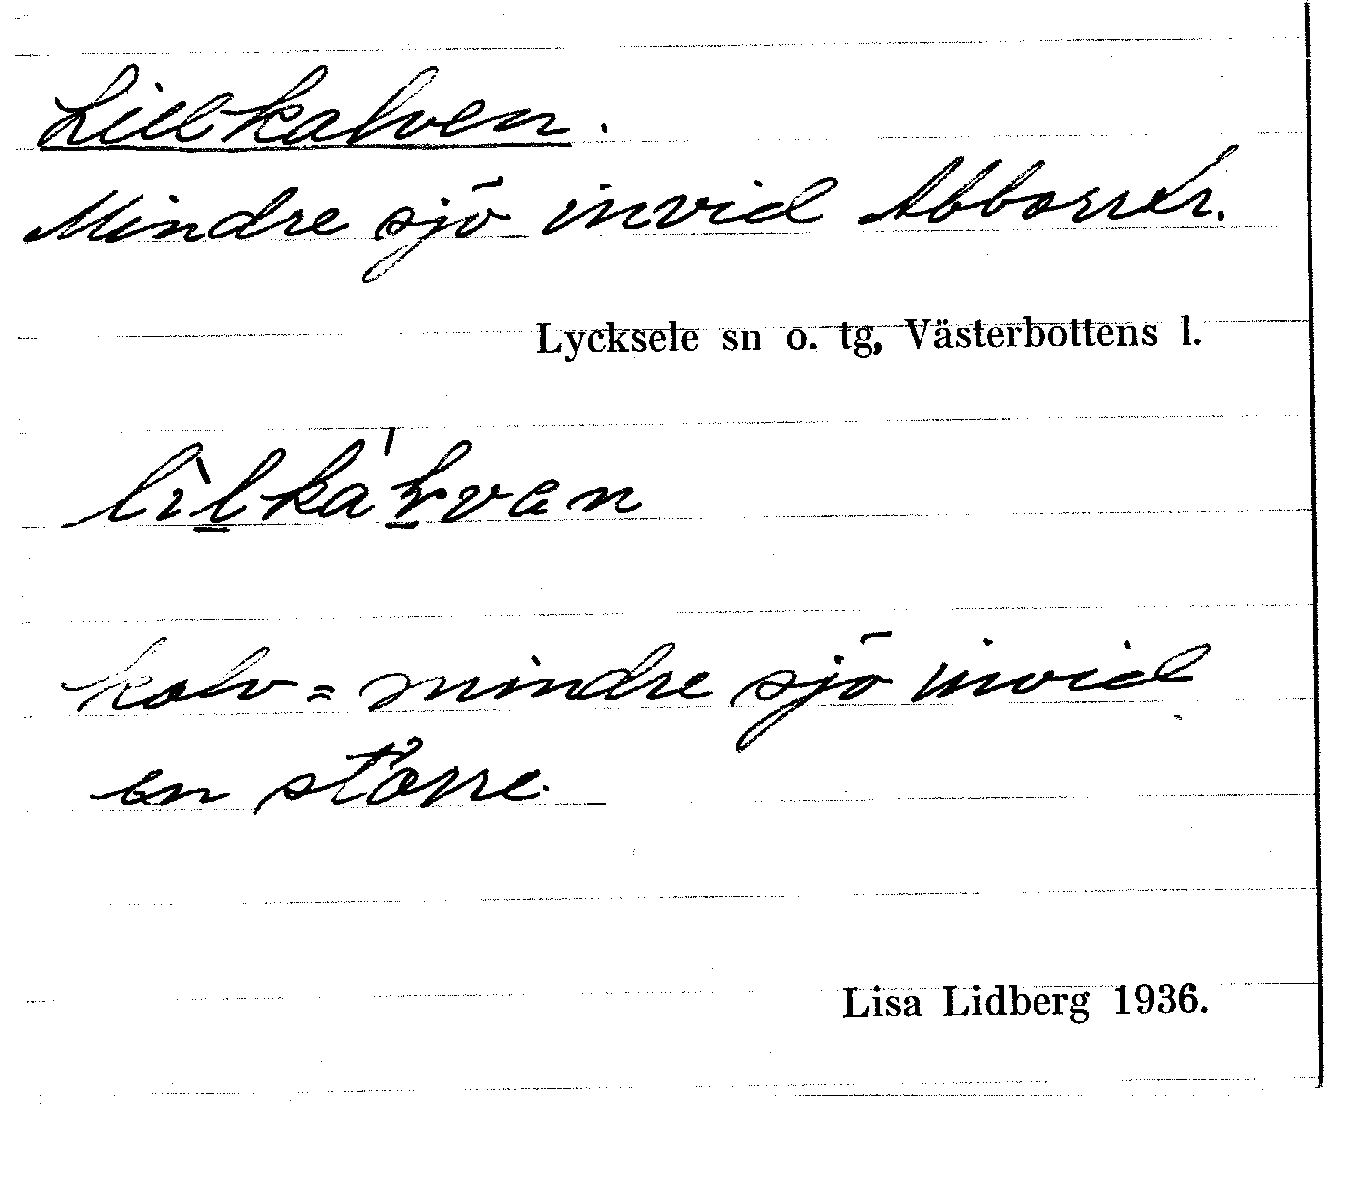 Lillkalven.
Mindre sjö invid Abborrtr.
Lycksele sn o. tg, Västerbottens l.
kalv = mindre sjö invid
en större.
Lisa Lidberg 1936.